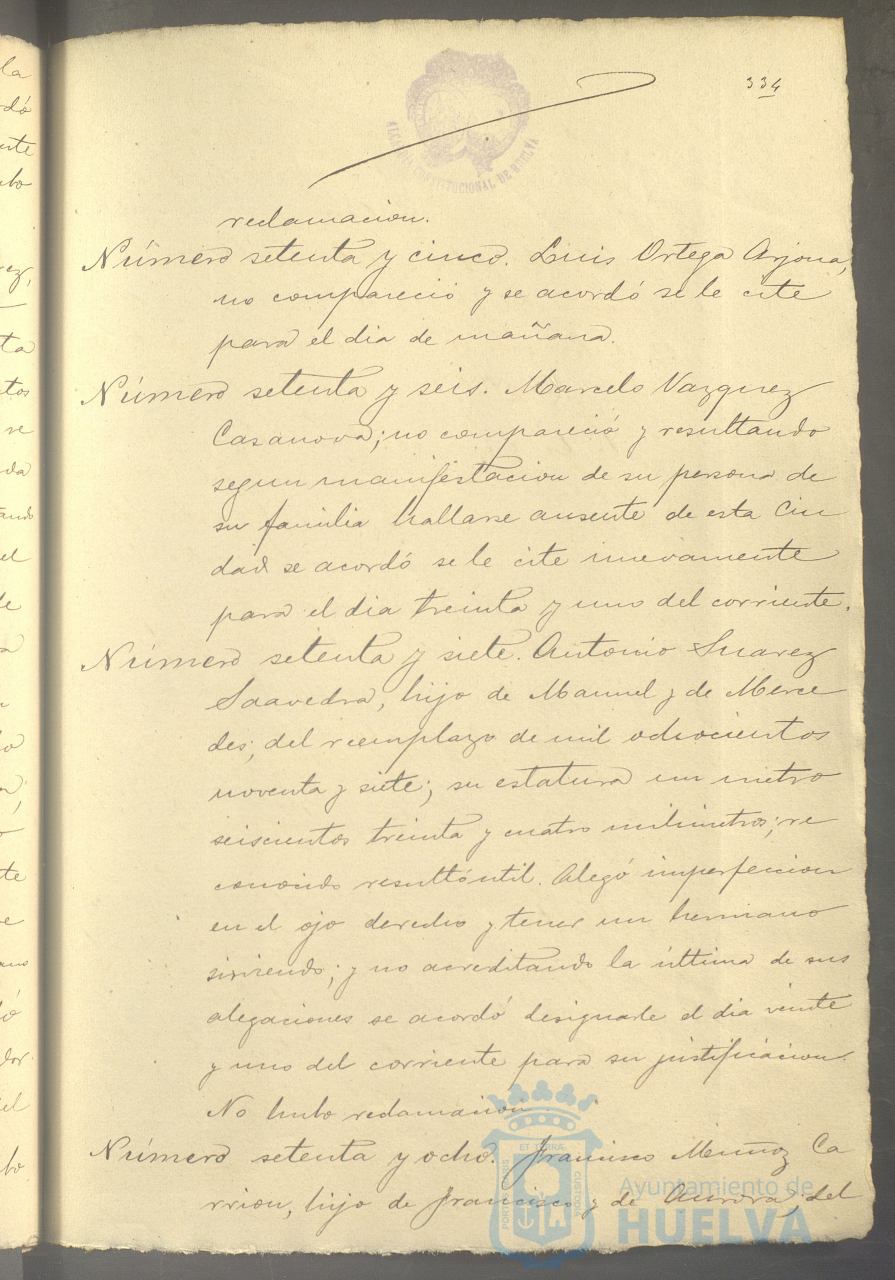 334
ALCALDIA CONSTITUCIONAL DE HUELVA
reclamacion.
Número setenta y cinco. Luis Ortega Arjona,
no compareció y se acordó se le cite
para el dia de mañana.
Número setenta y seis. Marcelo Vazquez
Casanova; no compareció y resultando
segun manifestacion de su persona de
su familia hallarse ausente de esta Ciu
dad se acordó se le cite nuevamente
para el dia treinta y uno del corriente.
Número setenta y siete. Antonio Suarez
Saavedra, hijo de Manuel y de Merce
des, del reemplazo de mil ochocientos
noventa y siete; su estatura un metro
seiscientos treinta y cuatro milimetros; re
conocido resultó util. Alegó imperfeccion
en el ojo derecho y tener un hermano
sirviendo; y no acreditando la última de sus
alegaciones se acordó designarle el dia veinte
y uno del corriente para su justificacion.
No hubo reclamacion.
Número setenta y ocho. Francisco Muñoz Ca
rrion, hijo de Francisco y de Aurora, del
PORTUS MARIS
ET TERRÆ
CUSTODIA
Ayuntamiento de
HUELVA